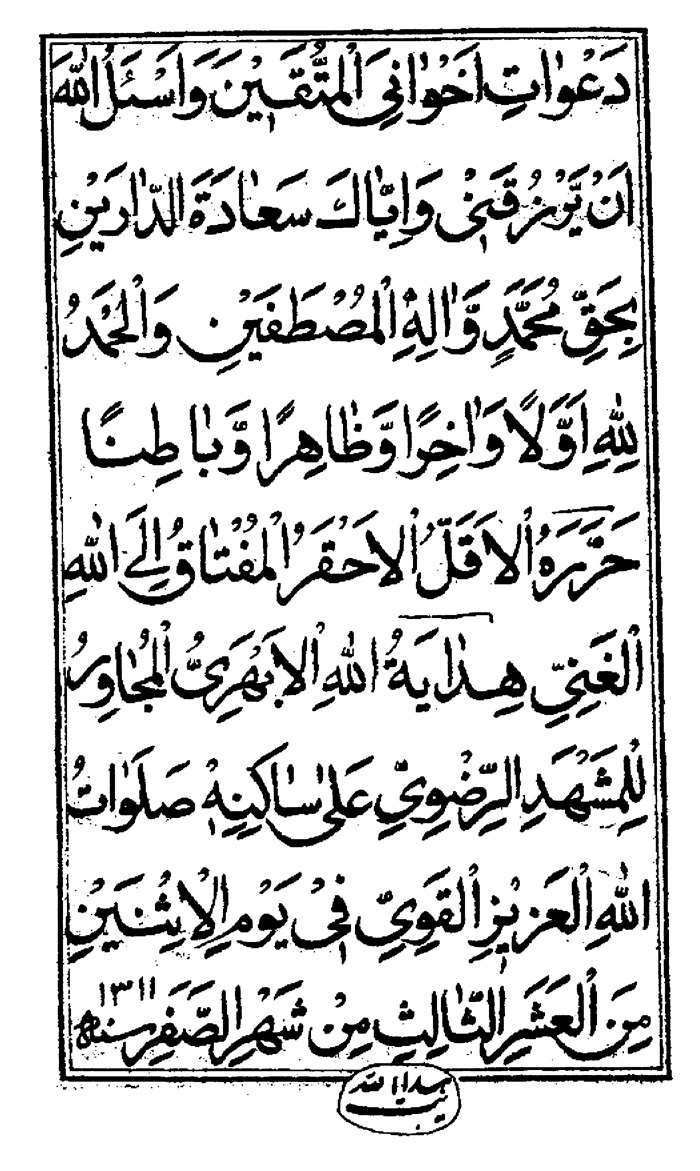 دَعَوٰاتِ اَخَوٰانِيَ الْمُتَّقِينَ وَاَسْئَلُ اللّٰهَ
اَنْ يَّرْزُقَنِيْ وَاِيّٰاكَ سَعٰادَةَ الدّٰارَيْنِ
بِحَقِّ مُحَمَّدٍ وَّاٰلِهِ الْمُصْطَفَيْنِ وَالْحَمْدُ
لِلّٰهِ اَوَّلًا وَاٰخِرًا وَّظٰاهِرًا وَّبٰاطِنًا
حَرَّرَهُ الْاَقَلُّ الْاَحْقَرُ الْمُفْتٰاقُ اِلَى اللّٰهِ
الْغَنِيِّ هِدٰايَةُ اللّٰهِ الْاَبْهَرِيُّ الْمُجٰاوِرُ
لِلْمَشْهَدِ الرَّضَوِيِّ عَلىٰ سٰاكِنِهٖ صَلَوٰاتُ
اللّٰهِ الْعَزِيزِ الْقَوِيِّ فِيْ يَوْمِ الْاِثْنَيْنِ
مِنَ الْعَشَرِ الثّٰالِثِ مِنْ شَهْرِ الصَّفَرِ سنه ١٣١١